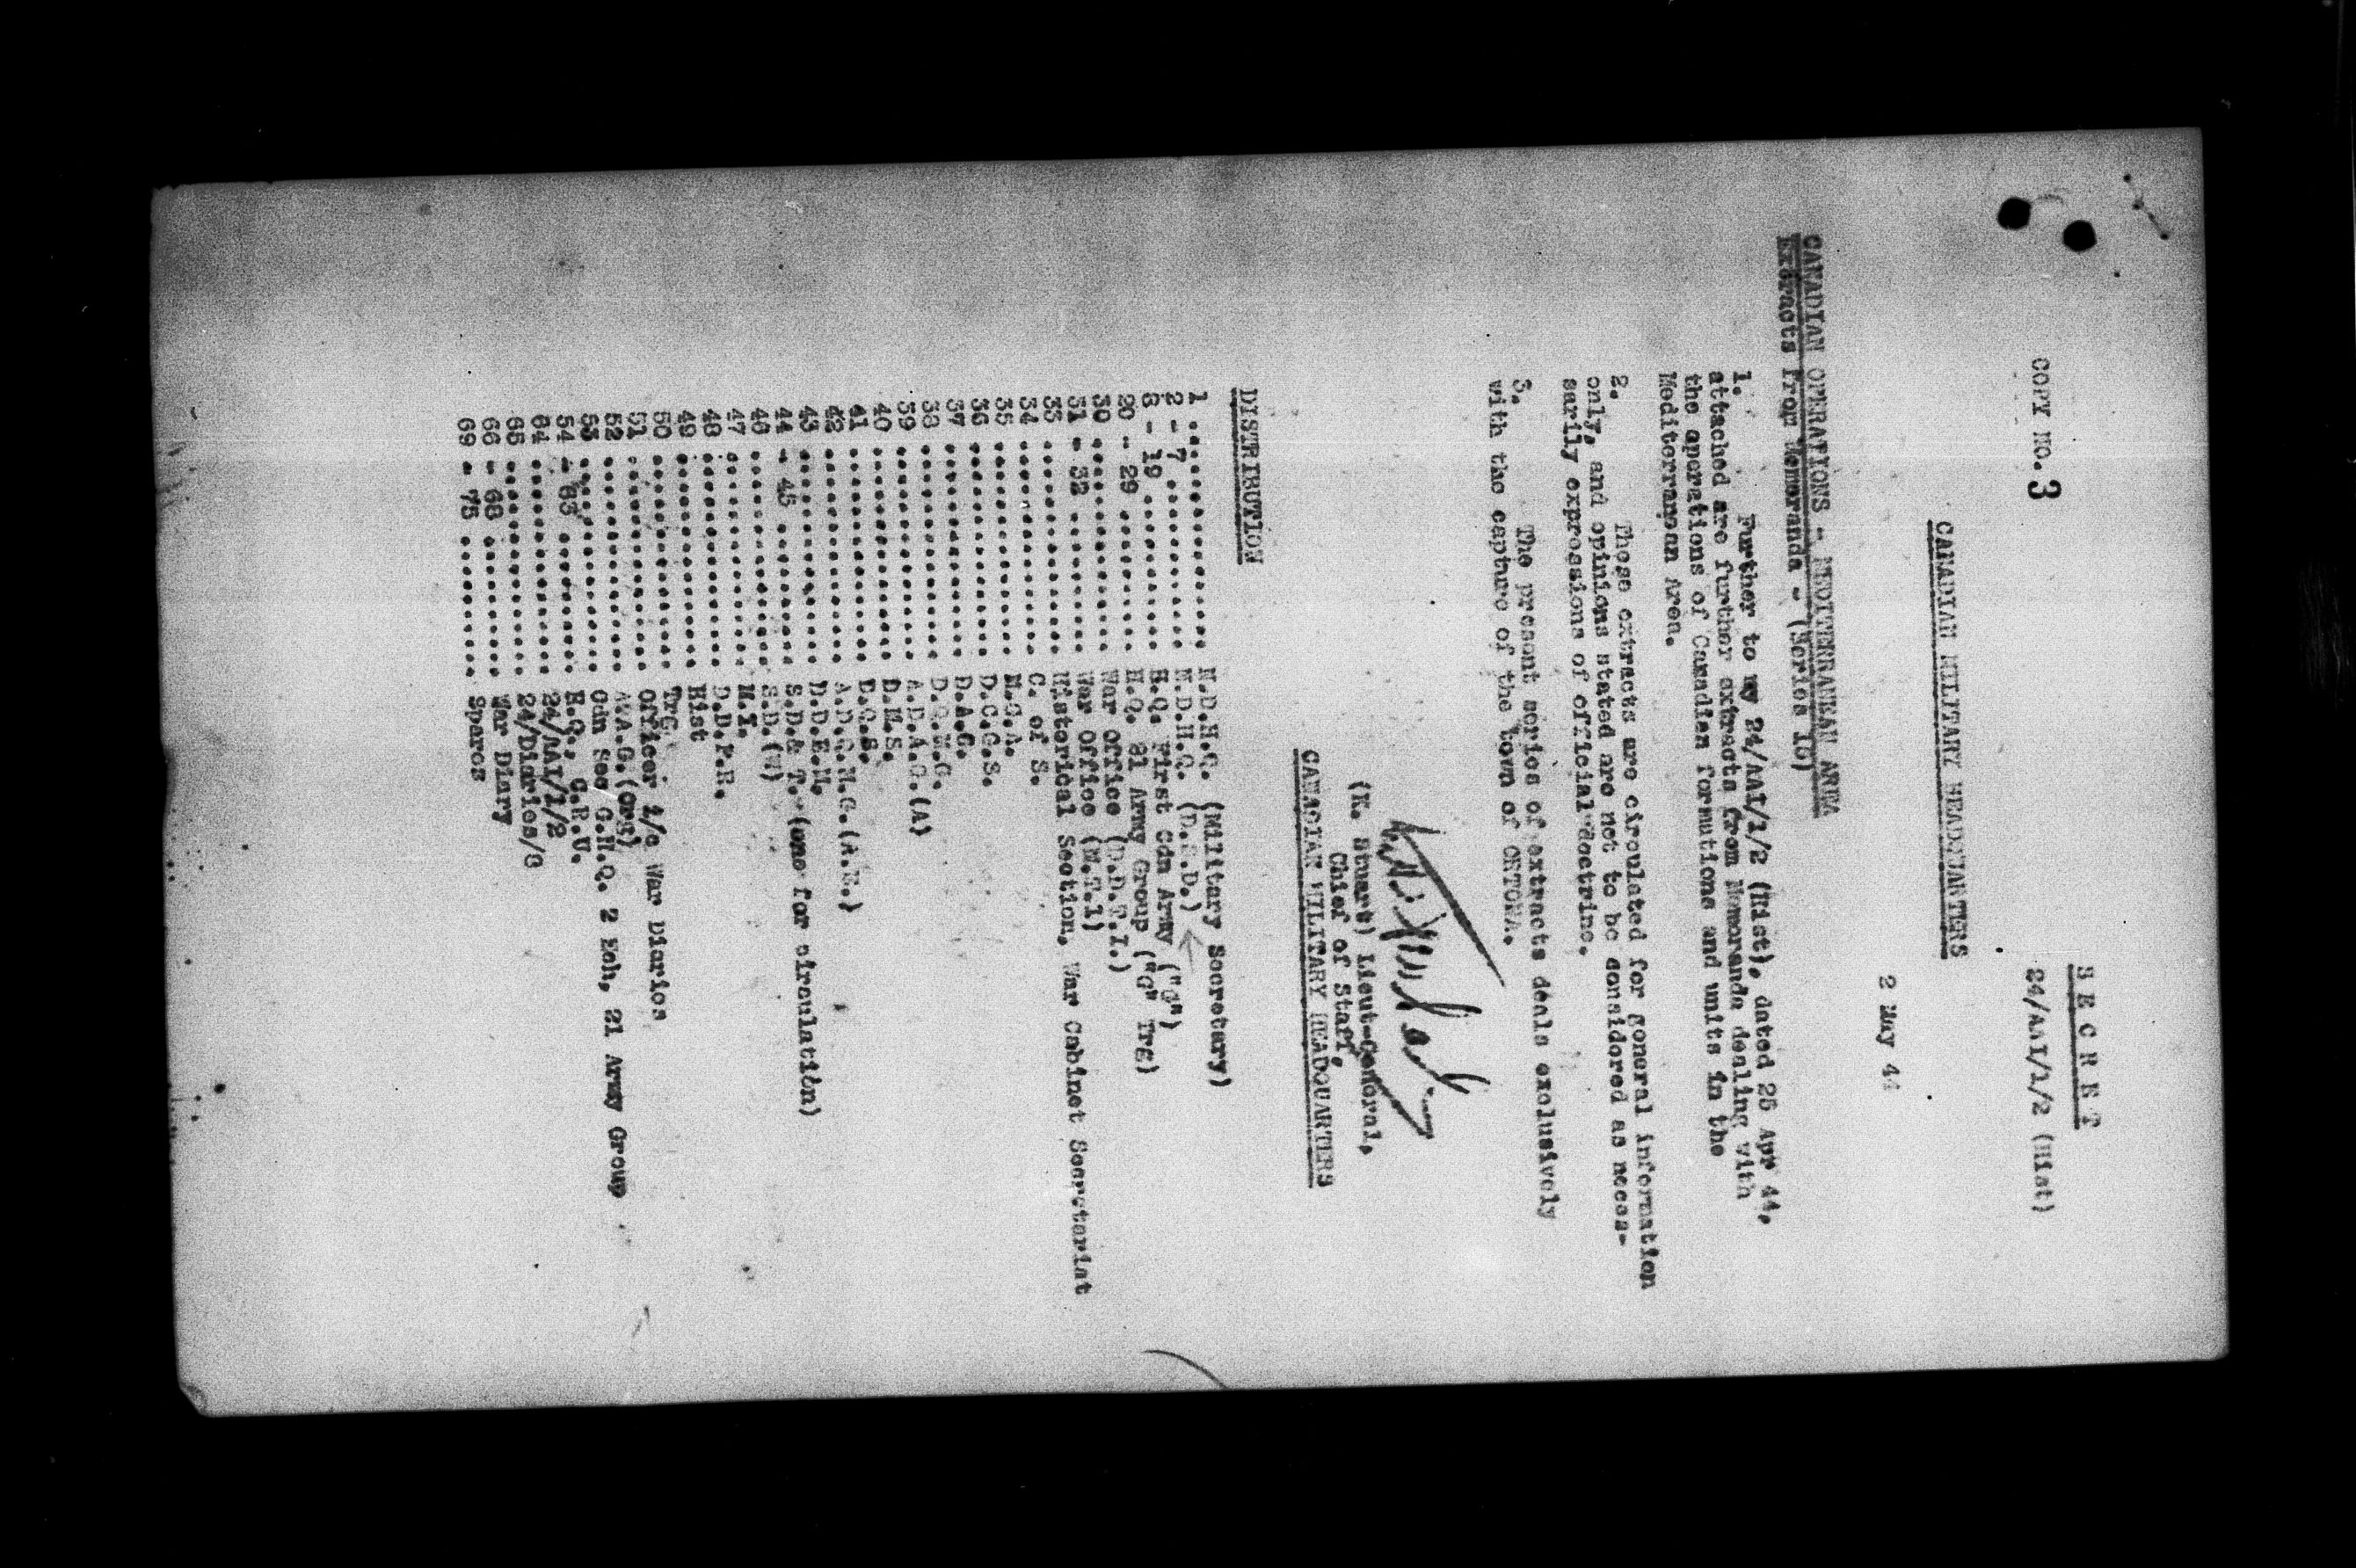 S E C R E T
COPY NO. 3
24/AAI/1/2 (Hist)
CANADIAN MILITARY HEADQUARTERS
2 May 44
CANADIAN OPERATIONS - MEDITERRANEAN AREA
Extracts from Memoranda - (Series 10)
1. Further to my 24/AAI/1/2 (Hist), dated 25 Apr 44,
attached are further extracts from Memoranda dealing with
the operations of Canadian formations and units in the
Mediterranean Area.
2. These extracts are circulated for general information
only, and opinions stated are not to be considered as neces-
sarily expressions of official doctrine.
3. The present series of extracts deals exclusively
with the capture of the town of ORTONA.
(K. Stuart) Lieut-General,
Chief of Staff,
CANADIAN MILITARY HEADQUARTERS
DISTRIBUTION
1 .................. N.D.H.Q. (Military Secretary)
2 - 7 .............. N.D.H.Q. (D.S.D.)
8 - 19 ............. H.Q. First Cdn Army ("G")
20 - 29 ............ H.Q. 21 Army Group ("G" Trg)
30 ................. War Office (D.D.T.I.)
31 - 32 ............ War Office (M.T.1)
33 ................. Historical Section, War Cabinet Secretariat
34 ................. C. of S.
35 ................. M.G.A.
36 ................. D.C.G.S.
37 ................. D.A.G.
38 ................. D.Q.M.G.
39 ................. A.D.A.G.(A)
40 ................. D.M.S.
41 ................. D.O.S.
42 ................. A.D.Q.M.G.(A.E.)
43 ................. D.D.E.M.
44 - 45 ............ S.D.& T. (one for circulation)
46 ................. S.D.(W)
47 ................. M.I.
48 ................. D.D.P.R.
49 ................. Hist
50 ................. Trg
51 ................. Officer i/c War Diaries
52 ................. A.A.G.(Org)
53 ................. Cdn Sec G.H.Q. 2 Ech, 21 Army Group
54 - 63 ............ H.Q., C.R.U.
64 ................. 24/AAI/1/2
65 ................. 24/Diaries/8
66 - 68 ............ War Diary
69 - 75 ............ Spares